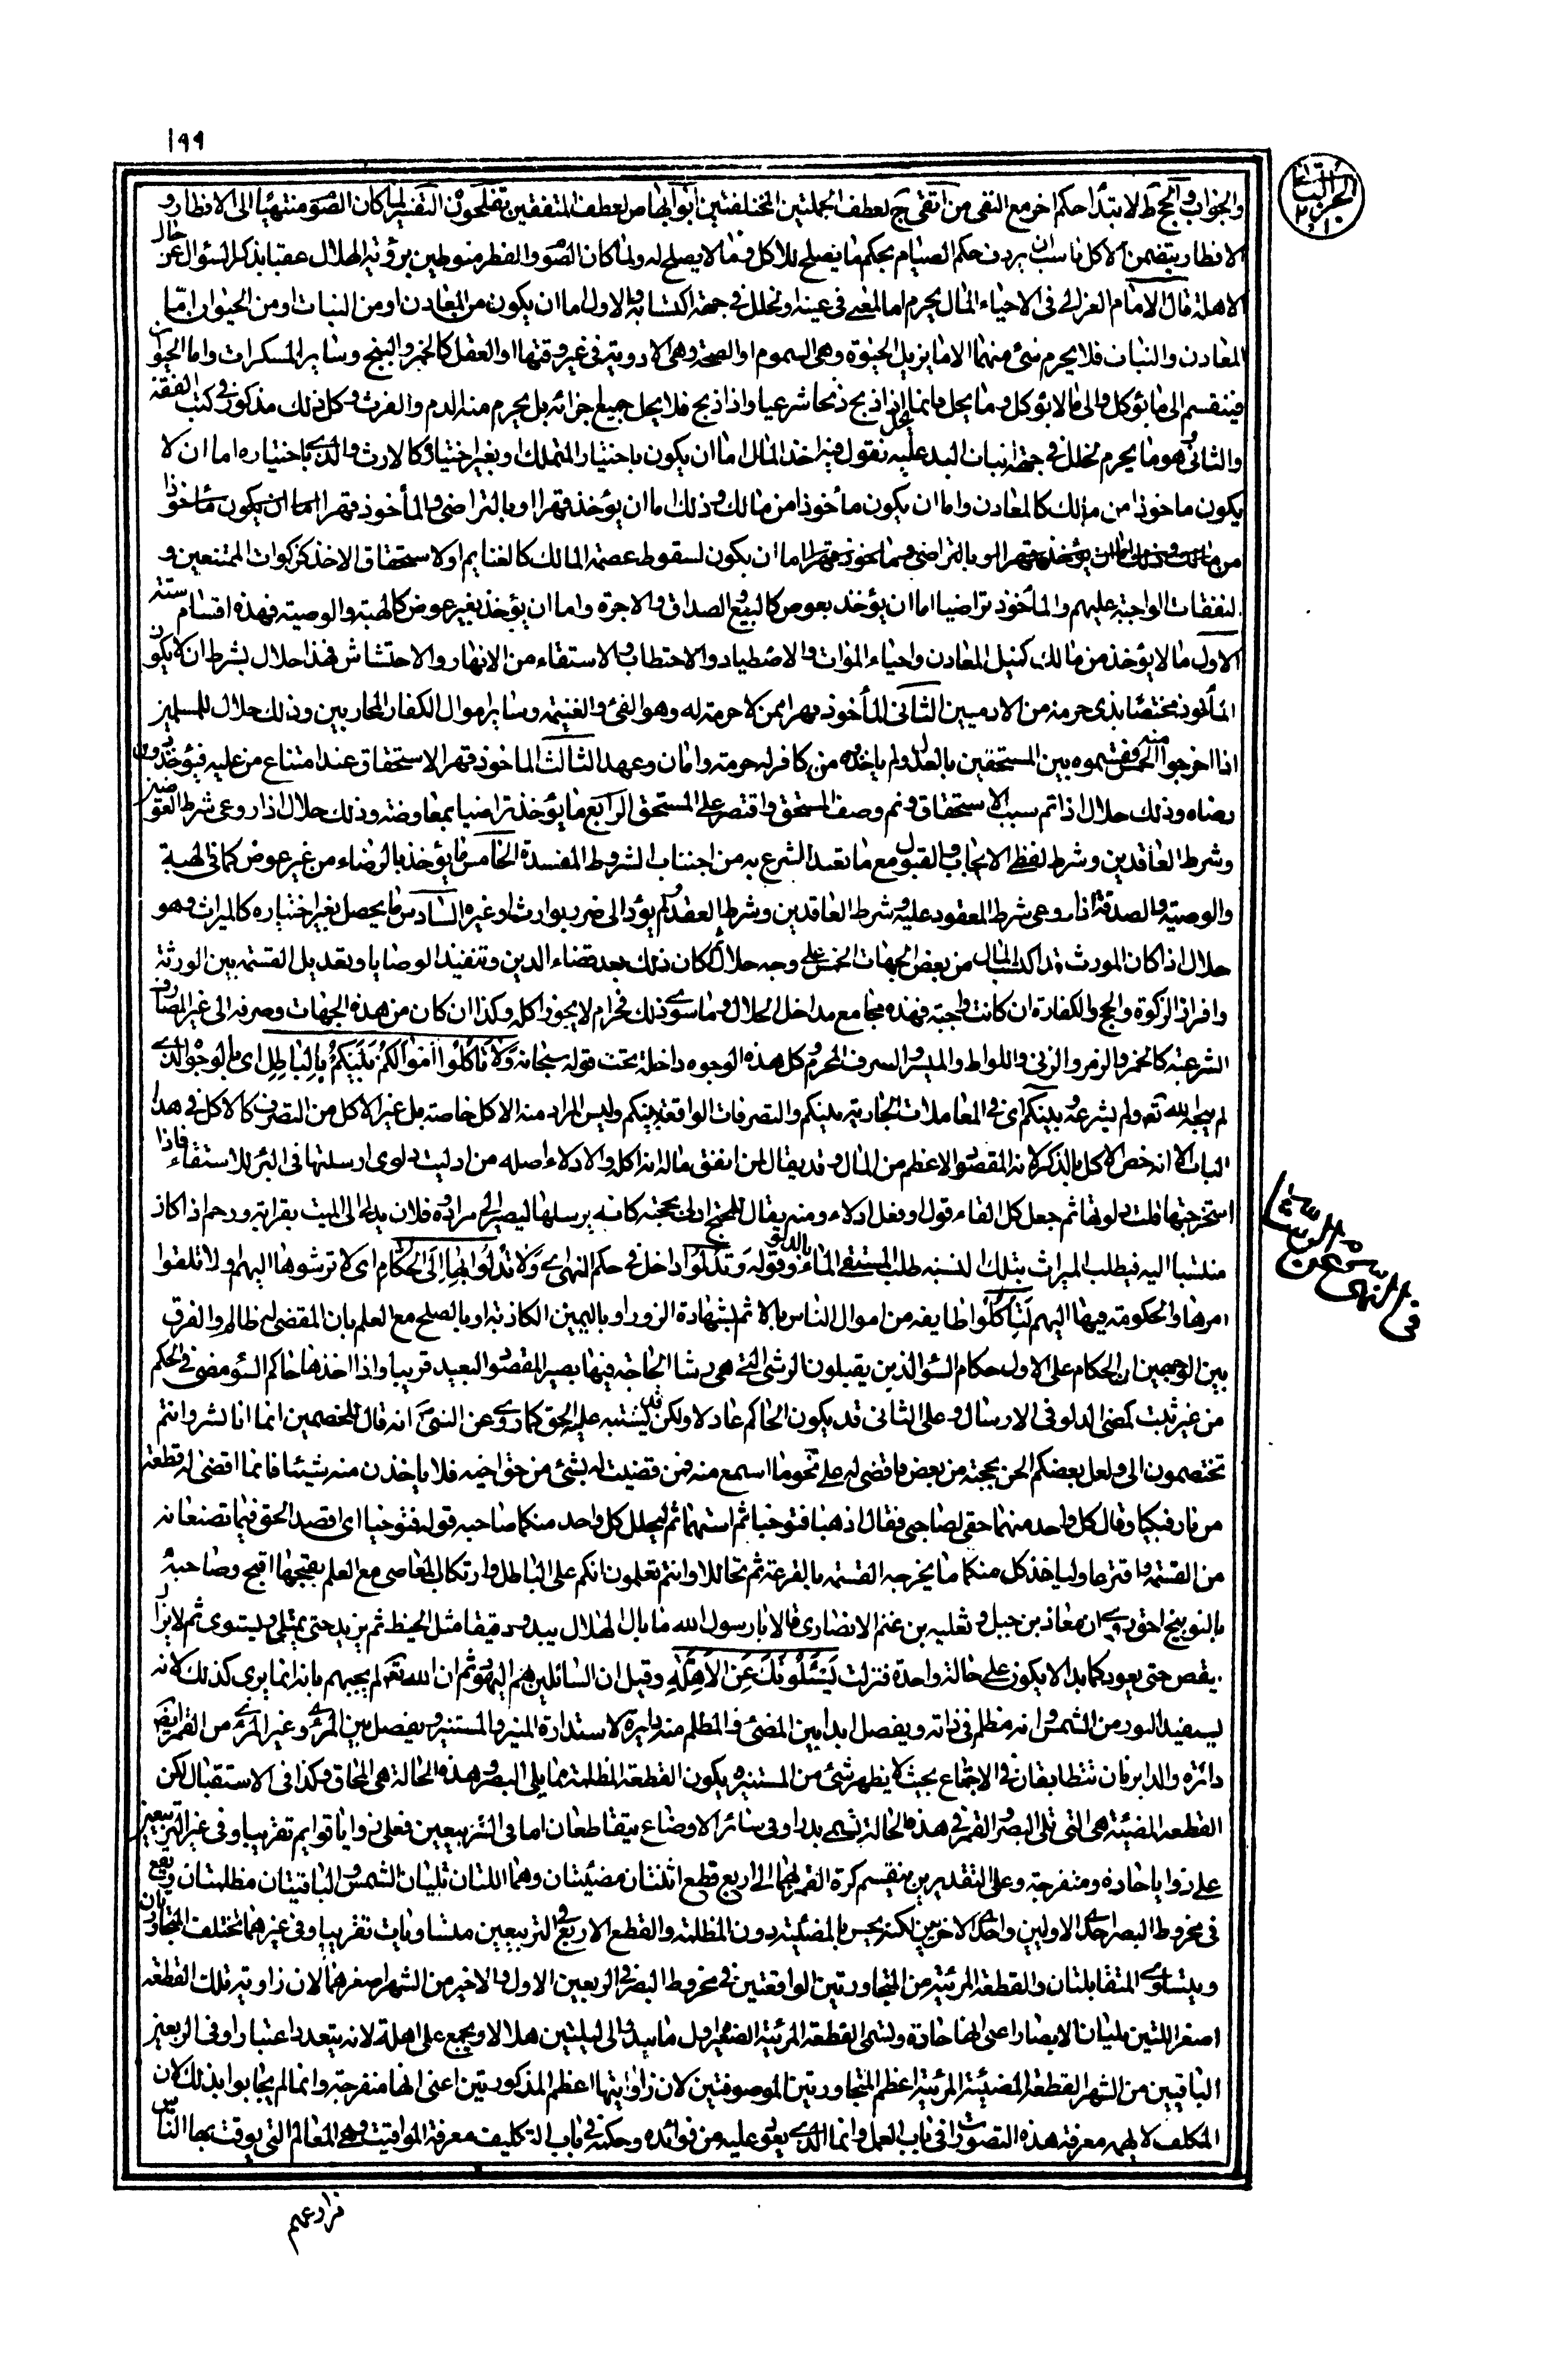 ١٩٩
الجزء الثانی
والجواب والحج ط لابتدأ حكم اخر مع النفى من اتقى ج لعطف الجملتين المختلفتين ابوابها ص لعطف المتفقتين تفلحون التفسير لما كان الصوم منتهيا الى الافطار و
الافطار يتضمن الاكل ناسب ان يردف حكم الصيام بحكم ما يصلح للاكل وما لا يصلح له ولما كان الصوم والفطر منوطين برؤية الهلال عقبا بذكر السؤال عن حال
الاهلة قال الامام الغزالى فى الاحياء المال يحرم اما لمعنى فى عينه او لخلل فى جهة اكتسابه والاول اما ان يكون من المعادن او من النبات او من الحيوان امّا
المعادن والنبات فلا يحرم شئ منهما الا ما يزيل الحيوة وهى السموم او الصحة وهى الادوية فى غير وقتها او العقل كالخمر والبنج وساير المسكرات واما الحيوان
فينقسم الى ما يؤكل والى ما لا يؤكل وما يحل فانما يحل اذا ذبح ذبحا شرعيا واذا ذبح فلا يحل جميع اجزائه بل يحرم منه الدم والفرث وكل ذلك مذكور فى كتب الفقه
والثانى وهو ما يحرم لخلل فى جهة اثبات اليد عليه نقول فيه اخذ المال اما ان يكون باختيار المتملك او بغير اختياره كالارث والذى باختياره اما ان لا
يكون ماخوذا من مالك كالمعادن واما ان يكون مأخوذا من مالك وذلك اما ان يؤخذ قهرا او بالتراضى والمأخوذ قهرا اما ان يكون مأخوذا
من مالك وذلك اما ان يؤخذ قهرا او بالتراضى والماخوذ قهرا اما ان يكون لسقوط عصمة المالك كالغنايم او لاستحقاق الاخذ كزكوات الممتنعين و
النفقات الواجبة عليهم والمأخوذ تراضيا اما ان يؤخذ بعوض كالبيع والصداق والاجرة واما ان يؤخذ بغير عوض كالهبة والوصية فهذه اقسام ستة
الاول ما لا يؤخذ من مالك كنيل المعادن واحياء الموات والاصطياد والاحتطاب والاستقاء من الانهار والاحتشاش فهذا حلال بشرط ان لا يكون
المأخوذ مختصا بذى حرمة من الادميين الثانى المأخوذ قهرا ممن لا حرمة له وهو الفئ والغنيمة وساير اموال الكفار المحاربين وذلك حلال للمسلمين
اذا اخرجوا منه الخمس وقسموه بين المستحقين بالعدل ولم ياخذوه من كافر له حرمة وامان وعهد الثالث الماخوذ قهرا لاستحقاق عند امتناع من عليه فيؤخذ دون
رضاه وذلك حلال اذا تم سبب الاستحقاق وتم وصف المستحق واقتصر على المستحق الرابع ما يؤخذ تراضيا بمعاوضة وذلك حلال اذا روعى شرط العوضين
وشرط العاقدين وشرط لفظى الايجاب والقبول مع ما تعبد الشرع به من اجتناب الشروط المفسدة الخامس ما يؤخذ بالرضاء من غير عوض كما فى الهبة
والوصية والصدقة اذا روعى شرط المعقود عليه وشرط العاقدين وشرط العقد ولم يؤد الى ضرر بوارث او غيره السادس ما يحصل بغير اختياره كالميراث وهو
حلال اذا كان المورث قد اكتسب المال من بعض الجهات الخمس على وجه حلال ثم كان ذلك بعد قضاء الدين وتنفيذ الوصايا وتعديل القسمة بين الورثة
وافراز الزكوة والحج والكفارة ان كانت واجبة فهذه مجامع مداخل الحلال وما سوى ذلك فحرام لا يجوز اكله وكذا ان كان من هذه الجهات وصرفه الى غير المصارف
الشرعية كالخمر والزمر والزنى واللواط والميسر والسرف المحرم وكل هذه الوجوه داخلة تحت قوله سبحانه وَلَا تَأكُلُوا اَموَالَكُم بَينَكُم بِالبَاطِلِ اى بالوجه الذى
لم يبحه الله تع ولم يشرعه وبينكم اى فى المعاملات الجارية بينكم والتصرفات الواقعة بينكم وليس المراد منه الاكل خاصة بل غير الاكل من التصرف كالاكل فى هذا
الباب الا انه خص الاكل بالذكر لانه المقصود الاعظم من المال وقد يقال لمن انفق ماله انه اكله والادلاء اصله من ادليت دلوى ارسلتها فى البئر للاستقاء فاذا
استخرجتها قلت دلوتها ثم جعل كل القاء قول او فعل ادلاء ومنه يقال للمحتج ادلى بحجته كانه يرسلها ليصير الى مراده وفلان يدلى الى الميت بقرابة ورحم اذا كان
منتسبا اليه فيطلب الميراث بتلك النسبة طلب المستقى الماء بالدلو وقوله وَتُدلُوا داخل فى حكم النهى اى وَلَا تُدلُوا بِهَا اِلَى الحُكَّامِ اى لا ترشوها اليهم ولا تلقوا
امرها والحكومة فيها اليهم لِتَأكُلُوا طايفة من اموال الناس بالاثم بشهادة الزور او باليمين الكاذبة او بالصلح مع العلم بان المقضى له ظالم والفرق
بين الوجهين ان الحكام على الاول حكام السؤ الذين يقبلون الرشى التى هى رشا الحاجة فيها يصير المقصود البعيد قريبا واذا اخذها حاكم السؤ مضى فى الحكم
من غير تثبت كمضى الدلو فى الارسال وعلى الثانى قد يكون الحاكم عادلا ولكن قد يشتبه عليه الحق كما روى عن النبى ص انه قال للخصمين انما انا بشر وانتم
تختصمون الى ولعل بعضكم الحن بحجته من بعض فاقضى له على نحو ما اسمع منه فمن قضيت له بشئ من حق اخيه فلا ياخذن منه شيئا فانما اقضى له قطعة
من نار فبكيا وقال كل واحد منهما حقى لصاحبى فقال اذهبا فتوخيا ثم استهما ثم ليحلل كل واحد منكما صاحبه قوله فتوخيا اى اقصدا الحق فيما تصنعانه
من القسمة واقترعا ولياخذ كل منكما ما يخرجه القسمة بالقرعة ثم تحاللا وانتم تعلمون انكم على الباطل وارتكاب المعاصى مع العلم بقبحها اقبح وصاحبه
بالتوبيخ احق روى ان معاذ بن جبل وثعلبه بن غنم الانصارى قالا يا رسول الله ما بال الهلال يبدو دقيقا مثل الخيط ثم يزيد حتى يمتلى ويستوى ثم لا يزال
ينقص حتى يعود كما بدا لا يكون على حالة واحدة فنزلت يَسئَلُونَكَ عَنِ الاَهِلَّةِ وقيل ان السائلين هم اليهود ثم ان الله تعم لم يجبهم بانه انما يرى كذلك لانه
يستفيد النور من الشمس وانه مظلم فى ذاته ويفصل ابدا بين المضئ والمظلم منه دايرة لاستدارة المنير والمستنير ويفصل بين المرئى وغير المرئى من القمر ايضا
دائرة والدايرتان تتطابقان فى الاجتماع بحيث لا يظهر شئ من المستنير ويكون القطعة المظلمة مما يلى البصر وهذه الحالة هى المحاق وكذا فى الاستقبال لكن
القطعة المضيئة هى التى تلى البصر والقمر فى هذه الحالة يسمى بدرا وفى سائر الاوضاع يتقاطعان اما فى التربيعين فعلى زوايا قوايم تقريبا وفى غير التربيعين
على زوايا حادة ومنفرجة وعلى التقديرين ينقسم كرة القمر بهما الى اربع قطع اثنتان مضيئتان وهما اللتان تليان الشمس والباقيتان مظلمتان ويقع
فى مخروط البصر احدى الاوليين واحدى الاخريين لكنه يحس بالمضيئة دون المظلمة والقطع الاربع فى التربيعين متساويات تقريبا وفى غيرهما تختلف المتجاورتان
ويتساوى المتقابلتان والقطعة المرئية من المتجاورتين الواقعتين فى مخروط البصر فى الربعين الاول والاخير من الشهر اصغرهما لان زاوية تلك القطعة
اصغر اللتين تليان الابصار اعنى انها حادة وتسمى القطعة المرئية الصغيرة اول ما يبدو الى ليلتين هلالا ويجمع على اهلة لانه يتعدد اعتبارا وفى الربعين
الباقيين من الشهر القطعة المضيئة المرئية اعظم المتجاورتين الموصوفتين لان زاوايتها اعظم المذكورتين اعنى انها منفرجة وانما لم يجابوا بذلك لان
المكلف لا يهمه معرفة هذه التصورات فى باب العمل وانما الذى يعود عليه من فوائده وحكمه فى باب التكليف معرفة المواقيت وهى المعالم التى يوقت بها الناس